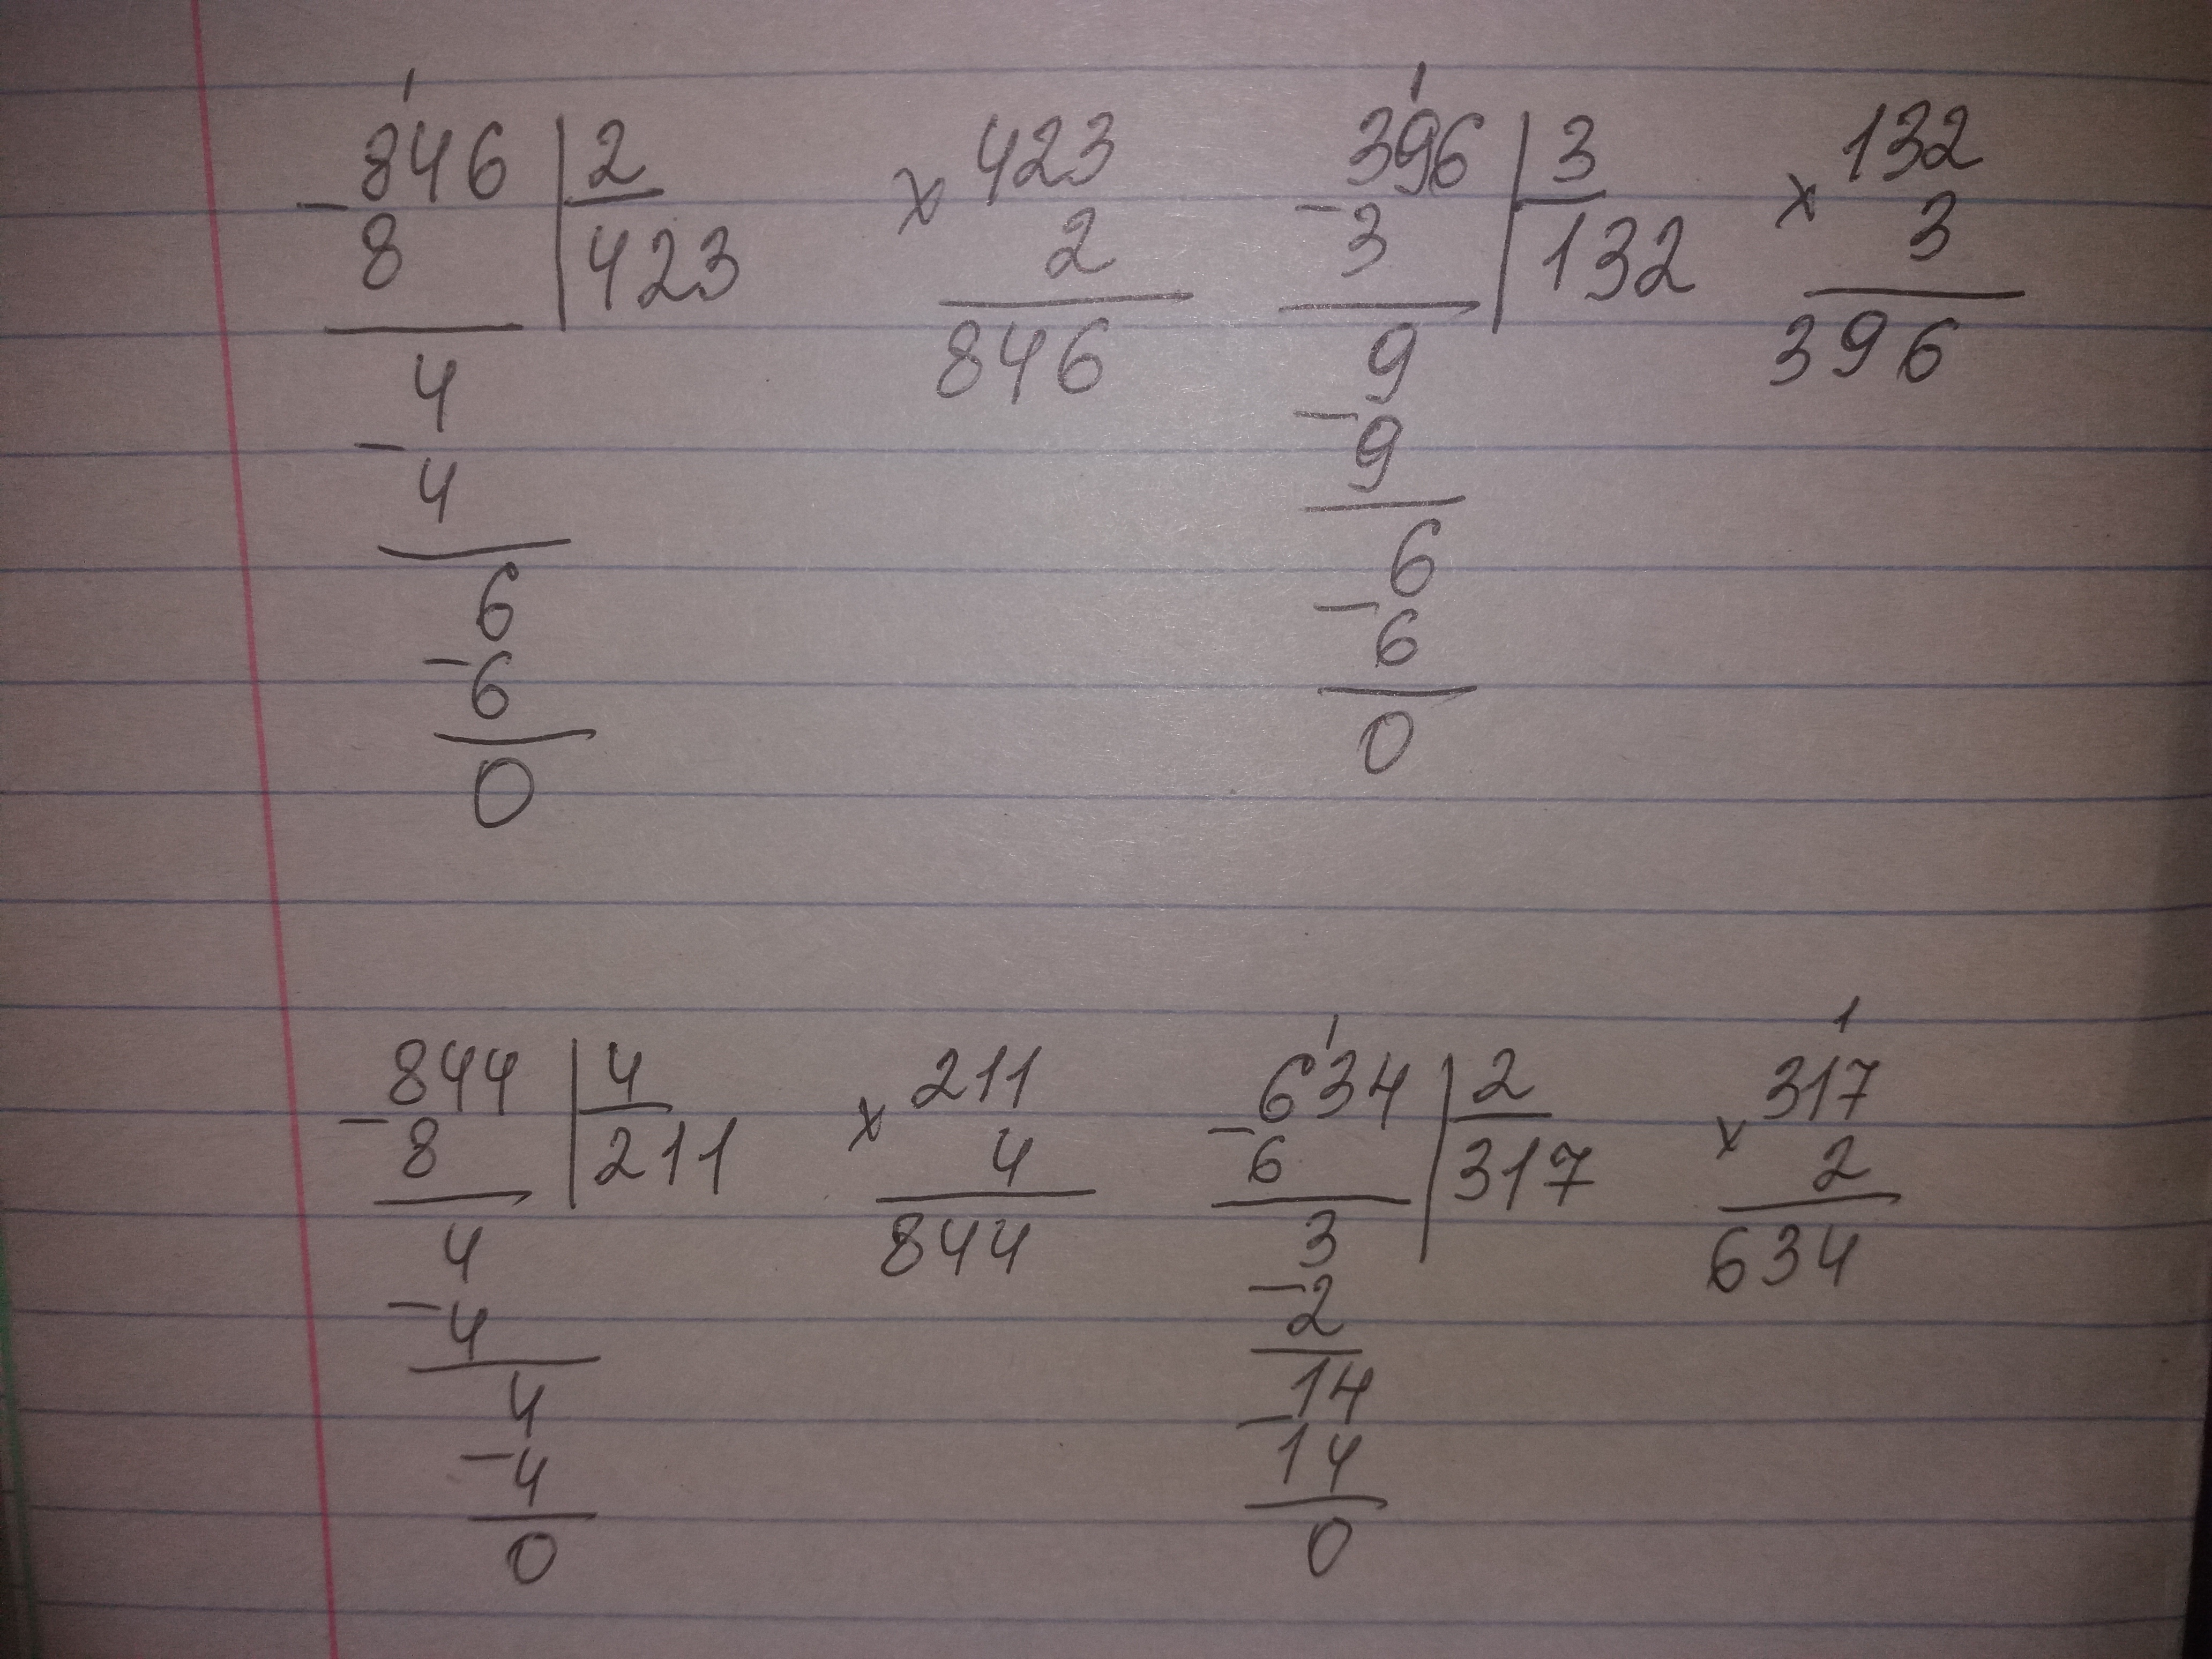 846 | 2
- 8 | 423
4
- 4
6
- 6
0
423
x 2
846
396 | 3
- 3 | 132
9
- 9
6
- 6
0
132
x 3
396
844 | 4
- 8 | 211
4
- 4
4
- 4
0
211
x 4
844
1
634 | 2
- 6 | 317
3
- 2
14
- 14
0
1
317
x 2
634